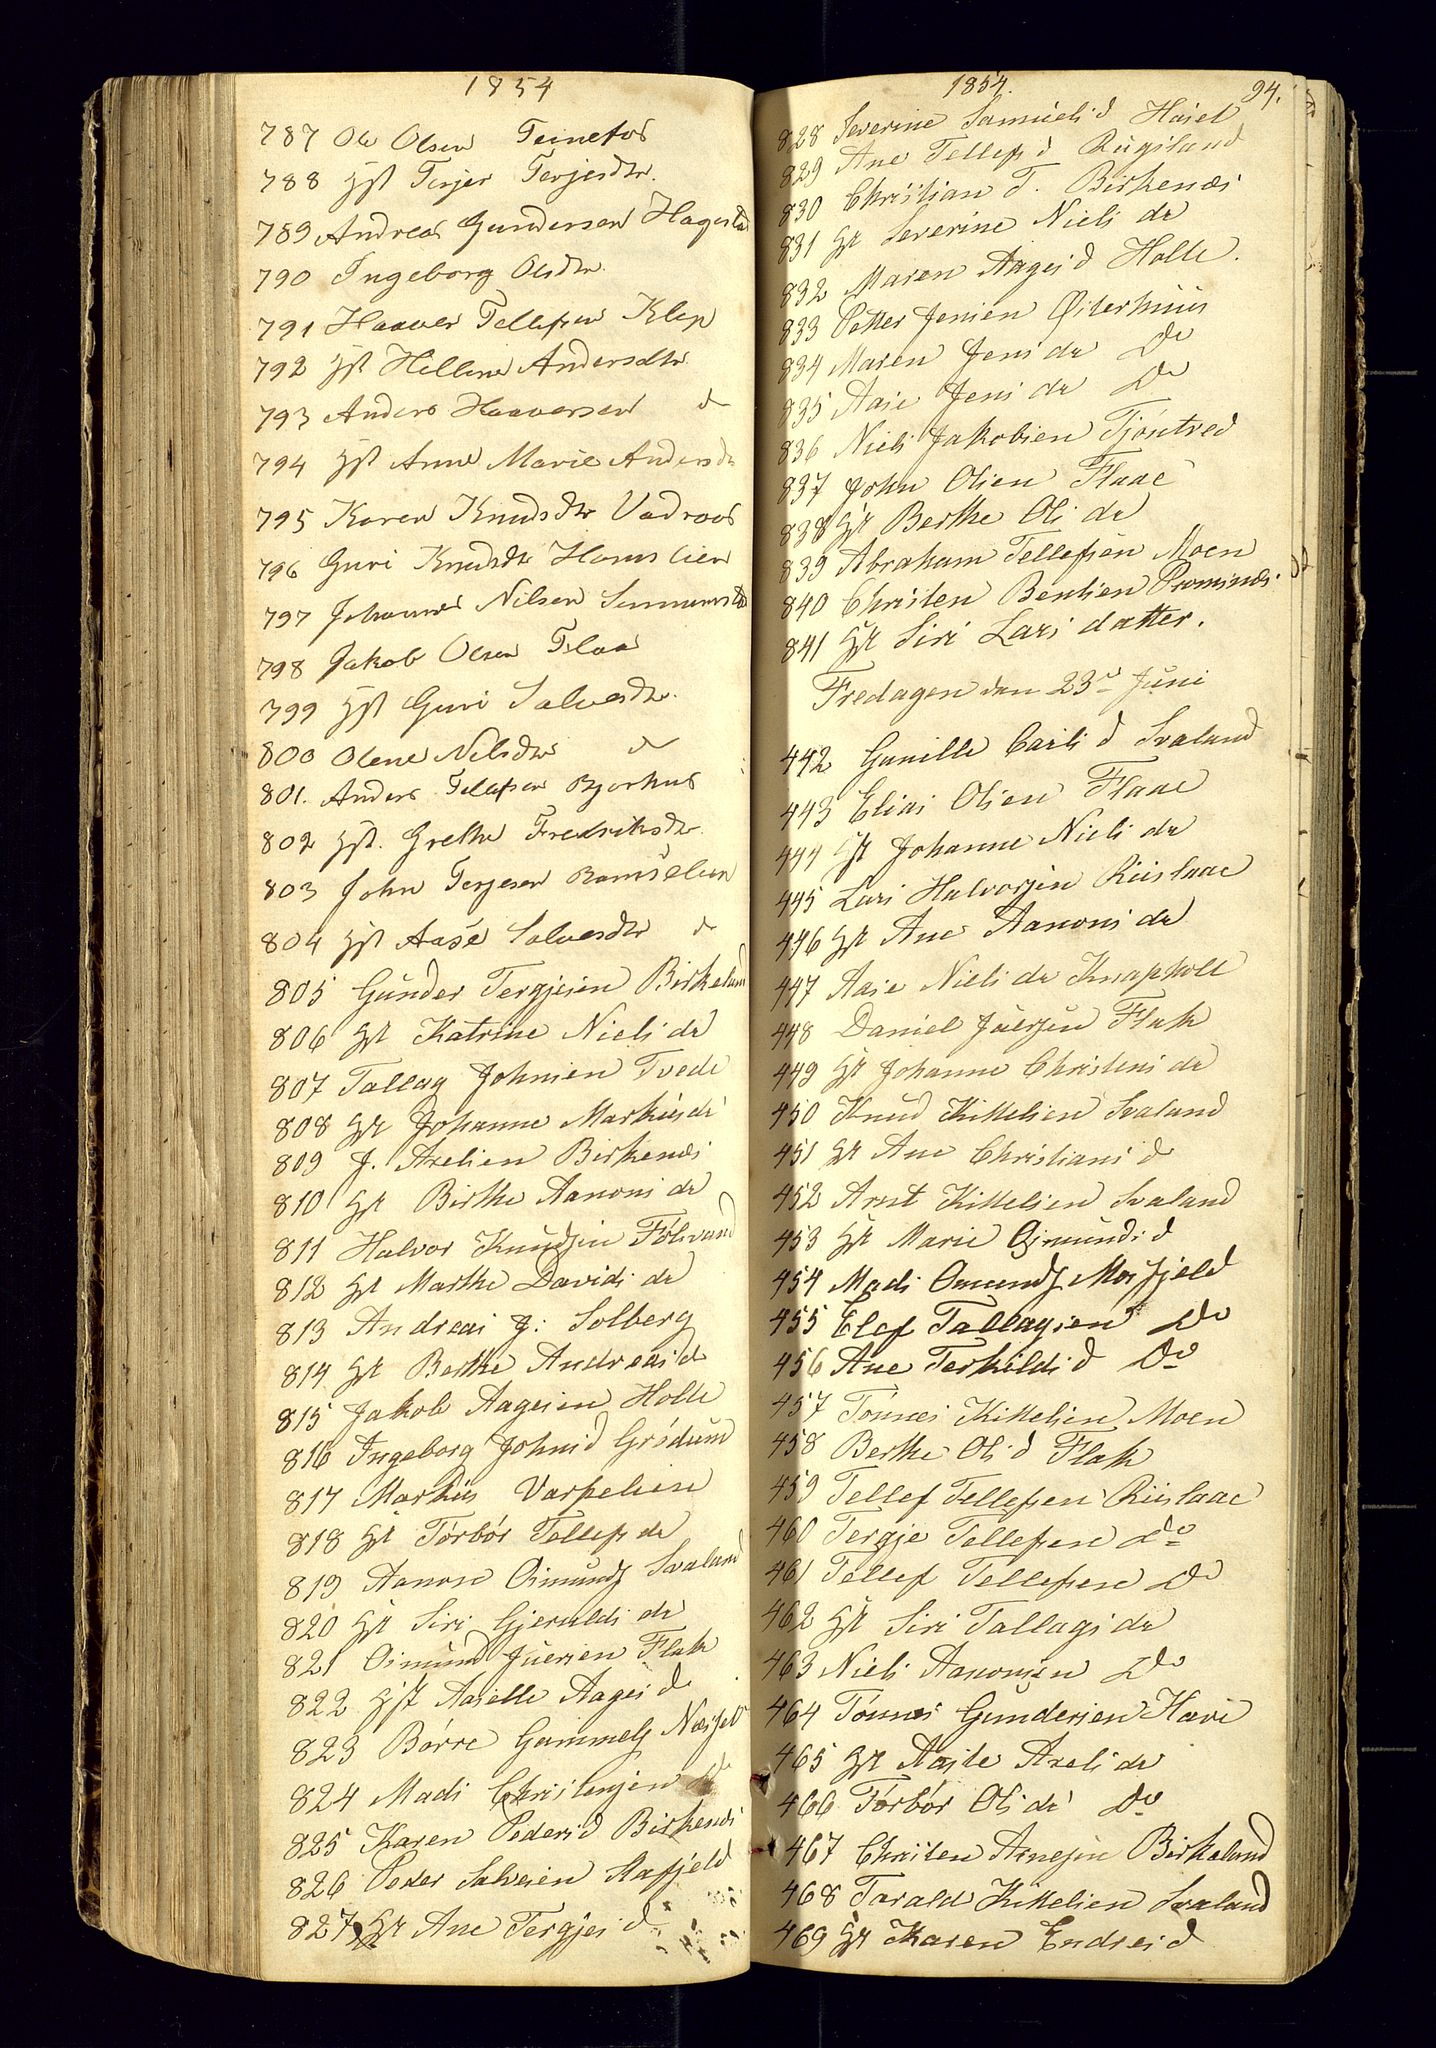 1854
787 Ole Olsen Teinefos
788 Hst Terjer Terjesdtr.
789 Andreas Gundersen Hagestad
790 Ingeborg Olsdtr.
791 Haaver Tellefsen Klep
792 Hst Hellene Andersdtr
793 Anders Haaversen do
794 Hst Anne Marie Andersdtr
795 Karen Knudsdtr Vadroos
796 Guri Knudsdtr Homslien
797 Johannes Nilsen
798 Jakob Olsen Flaa
799 Hst Guri Salvesdtr.
800 Olene Nilsdtr do
801. Anders Tellefsen Bjorhus
802 Hst. Grethe Fredriksdtr.
803 John Terjesen Ramselien
804 Hst Aase Salvesdtr do
805 Gunder Tergjesen Birkeland
806 Hst Katrine Niels dr
807 Tallag Johnsen Tvede
808 Hst Johanne Markus dr
809 J. Axelsen Birkenes
810 Hst Birthe Aanons dr
811 Halvor Knudsen Fölvand
812 Hst Marthe Davids dr
813 Andreas J: Solberg
814 Hst Berthe Andreas d
815 Jakob Aagesen Holte
816 Ingeborg Johns d Grödum
817 Markus Varpelien
818 Hst Törbör Tellefs dr
819 Aanon Osmunds Svaland
820 Hst Siri Gjeralds dr
821 Osmund Juersen Flak
822 Hst Aaselle Aages d
823 Börre Gammels
824 Mads Christensen Do
825 Karen Peders d Birkenes
826 Peder Salvesen Stapfjeld
827 Hst Ane Tergjes d
1854. 94.
828 Severine Samuels d Haset
829 Ane Tellefs d Rugsland
830 Christian T. Birkenes
831 Hst Severine Niels dr
832 Maren Aages d Holte.
833 Petter Jensen Østerhuus
834 Maren Jens dr Do
835 Aase Jens dr Do
836 Niels Jakobsen Tjöntved
837 John Olsen Flaae
838 Hst Berthe Ols dr
839 Abraham Tellefsen Moen
840 Christen Bentsen
841 Hst Siri Lars datter.
Fredagen den 23de Juni
442 Gunille Carls d Svaland
443 Elias Olsen Flaae
444 Hst Johanne Niels dr
445 Lars Halvorsen Riislaae
446 Hst Ane Aanons dr
447 Aase Niels dr Knapholt
448 Daniel Juersen Flak
449 Hst Johanne Christens dr
450 Knud Kittelsen Svaland
451 Hst Ane Christians d
452 Arnt Kittelsen Svaland
453 Hst Marie Osmunds d
454 Mads Omunds Mosfjeld
455 Elef Tallagsen Do
456 Ane Terkilds d Do
457 Tönnes Kittelsen Moen
458 Berthe Ols d Flak
459 Tellef Tellefsen Riislaae
460 Tergje Tellefsen Do
461 Tellef Tellefsen Do
462 Hst Siri Tallags dr
463 Niels Aanonsen Do
464 Tönnes Gundersen Have
465 Hst Aaste Axels dr
466 Törbör Ols dr Do
467 Christen Arnesen Birkeland
468 Tarald Kittelsen Svaland
469 Hst Karen Endres d